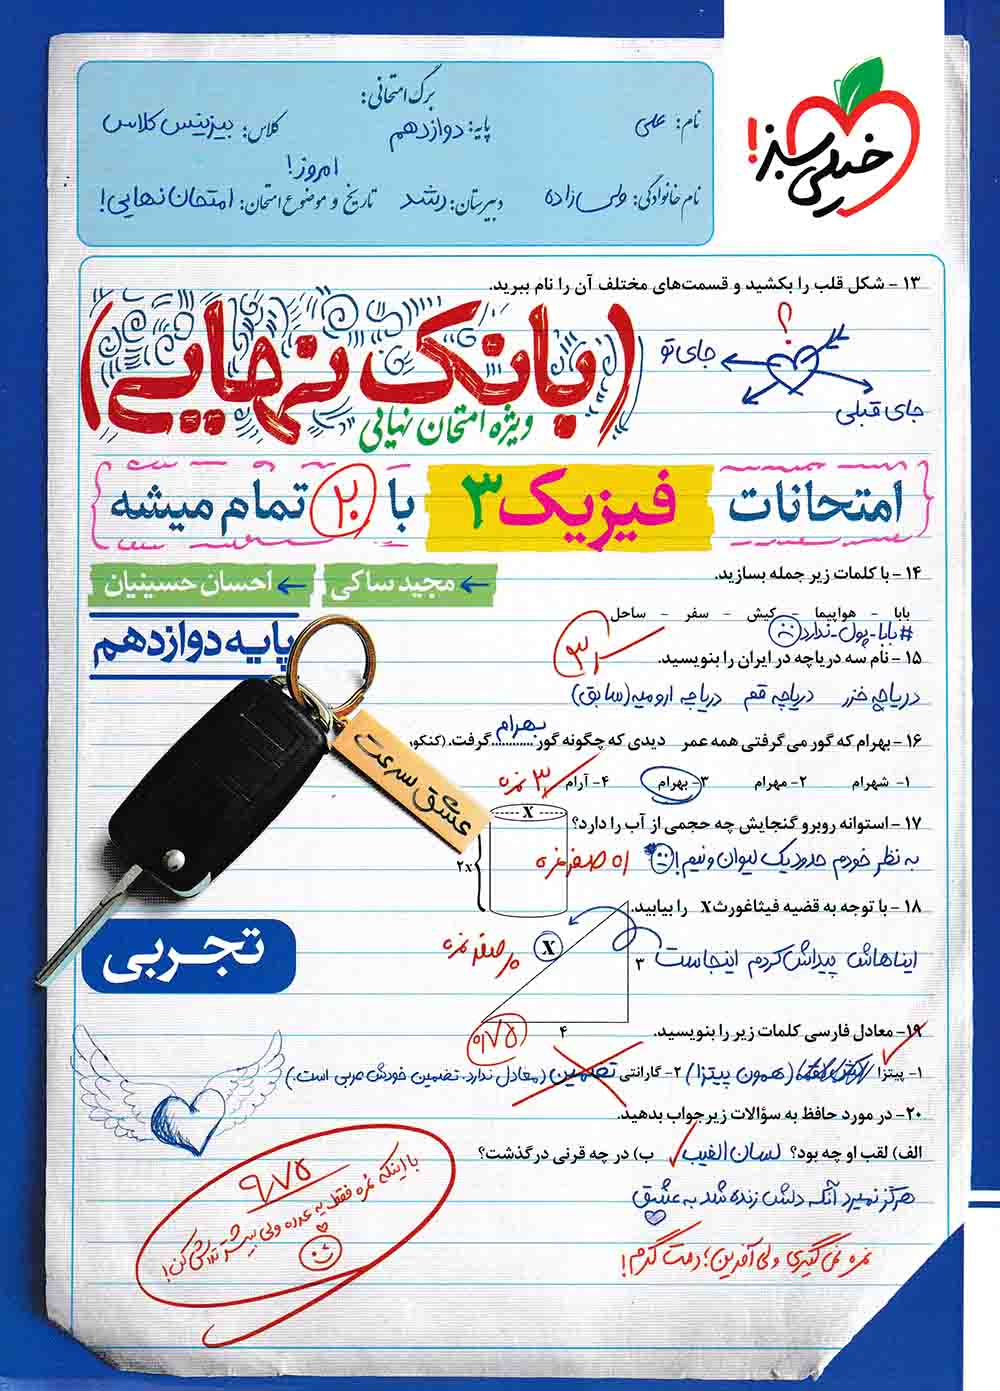 خیلی سبز!
برگ امتحانی:
نام: علی
پایه: دوازدهم
کلاس: بیزینس کلاس
نام خانوادگی: ولی‌زاده
دبیرستان: رشد
تاریخ و موضوع امتحان: امروز! امتحان نهایی!
۱۳ - شکل قلب را بکشید و قسمت‌های مختلف آن را نام ببرید.
؟
جای تو
جای قبلی
(بانک نهایی)
ویژه امتحان نهایی
امتحانات فیزیک ۳ با ۲۰ تمام میشه
مجید ساکی
احسان حسینیان
پایه دوازدهم
۱۴ - با کلمات زیر جمله بسازید.
بابا - هواپیما - کیش - سفر - ساحل
#بابا-پول-ندارد
۱۵ - نام سه دریاچه در ایران را بنویسید.
دریاچه خزر دریاچه قم دریاچه ارومیه (سابق)
۱۶ - بهرام که گور می‌گرفتی همه عمر دیدی که چگونه گور بهرام گرفت. (کنکور
۱- شهرام ۲- مهرام ۳- بهرام ۴- آرام
۳ نمره
عشق سرعت
۱۷ - استوانه روبرو گنجایش چه حجمی از آب را دارد؟
X
2x
به نظر خودم حدود یک لیوان و نیم!
صفر نمره
۱۸ - با توجه به قضیه فیثاغورث X را بیابید.
ایناهاش پیداش کردم اینجاست
X
۳
۴
صفر نمره
تجربی
۱۹- معادل فارسی کلمات زیر را بنویسید.
۰/۷۵
۱- پیتزا (همون پیتزا) ۲- گارانتی تضمین (معادل ندارد. تضمین خودش عربی است.)
۲۰- در مورد حافظ به سؤالات زیر جواب بدهید.
الف) لقب او چه بود؟ لسان الغیب ب) در چه قرنی درگذشت؟
هرگز نمیرد آنکه دلش زنده شد به عشق
نمره نمی‌گیری ولی آفرین؛ دمت گرم!
۹/۷۵
با اینکه نمره فقط یه عدده ولی بیشتر تلاش کن!